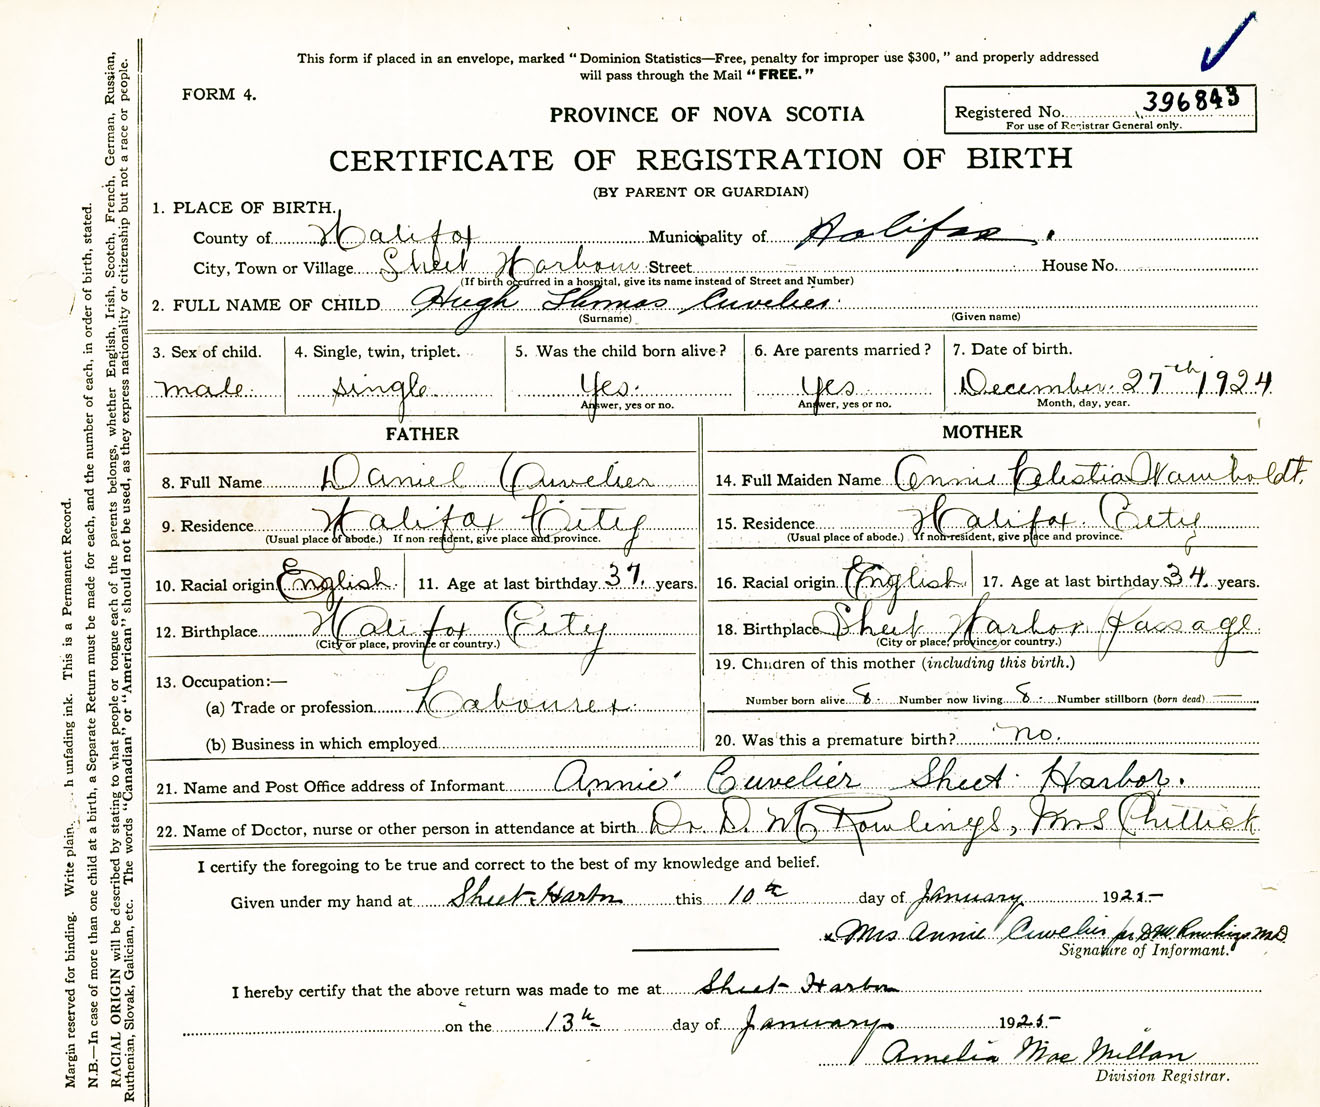 This form if placed in an envelope, marked "Dominion Statistics—Free, penalty for improper use $300," and properly addressed
will pass through the Mail "FREE."
FORM 4.
PROVINCE OF NOVA SCOTIA
Registered No. 396843
For use of Registrar General only.
CERTIFICATE OF REGISTRATION OF BIRTH
(BY PARENT OR GUARDIAN)
1. PLACE OF BIRTH.
County of Halifax Municipality of Halifax.
City, Town or Village Sheet Harbour Street House No.
(If birth occurred in a hospital, give its name instead of Street and Number)
2. FULL NAME OF CHILD Hugh Thomas Cuvelier.
(Surname) (Given name)
3. Sex of child. 4. Single, twin, triplet. 5. Was the child born alive? 6. Are parents married? 7. Date of birth.
male. single. Yes. Yes. December. 27th 1924
Answer, yes or no. Answer, yes or no. Month, day, year.
FATHER MOTHER
8. Full Name Daniel Cuvelier 14. Full Maiden Name Annie Celestia Wamboldt.
9. Residence Halifax City 15. Residence Halifax. City
(Usual place of abode.) If non resident, give place and province. (Usual place of abode.) If non-resident, give place and province.
10. Racial origin English. 11. Age at last birthday 37. years. 16. Racial origin English 17. Age at last birthday 34. years.
12. Birthplace Halifax City 18. Birthplace Sheet Harbor Passage.
(City or place, province or country.) (City or place, province or country.)
19. Children of this mother (including this birth.)
13. Occupation:—
(a) Trade or profession Labourer. Number born alive 8. Number now living 8. Number stillborn (born dead) —
(b) Business in which employed 20. Was this a premature birth? no.
21. Name and Post Office address of Informant Annie Cuvelier Sheet Harbor.
22. Name of Doctor, nurse or other person in attendance at birth Dr. D. M. Rowlings, Mrs Chittick
I certify the foregoing to be true and correct to the best of my knowledge and belief.
Given under my hand at Sheet Harbor this 10th day of January 1925-
x Mrs Annie Cuvelier per D.M. Rowlings M.D.
Signature of Informant.
I hereby certify that the above return was made to me at Sheet Harbor
on the 13th day of January 1925-
Amelia MacMillan
Division Registrar.
Margin reserved for binding. Write plain h unfading ink. This is a Permanent Record.
N.B.—In case of more than one child at a birth, a Separate Return must be made for each, and the number of each, in order of birth, stated.
RACIAL ORIGIN will be described by stating to what people or tongue each of the parents belongs, whether English, Irish, Scotch, French, German, Russian,
Ruthenian, Slovak, Galician, etc. The words "Canadian" or "American" should not be used, as they express nationality or citizenship but not a race or people.